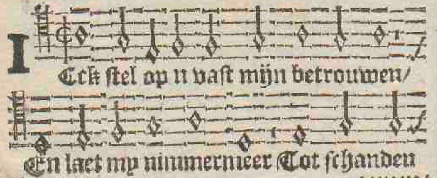 IEck stel op u vast mijn betrouwen/
En laet my nimmermeer Tot schanden